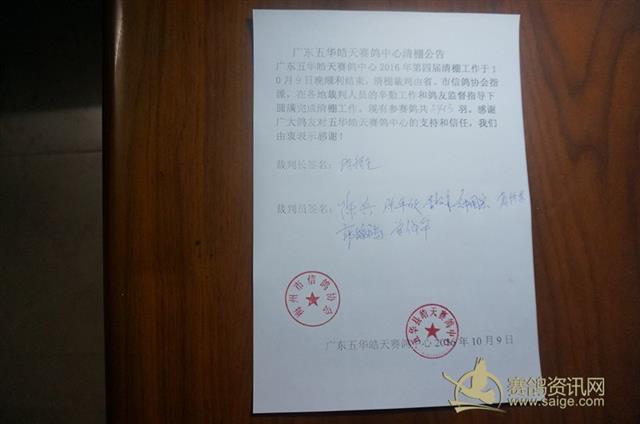 广东五华皓天赛鸽中心清棚公告
广东五华皓天赛鸽中心 2016 年第四届清棚工作于
10 月 9 日晚顺利结束，清棚裁判由省、市信鸽协会指
派，在各地裁判人员的辛勤工作和鸽友监督指导下
圆满完成清棚工作。现有参赛鸽共 羽，感谢
广大鸽友对五华皓天赛鸽中心的支持和信任，我们
由衷表示感谢！
裁判长签名：
裁判员签名：
市信鸽协会
五华县皓天赛鸽中心
广东五华皓天赛鸽中心 2016 年 10 月 9 日
赛鸽资讯网
www.saige.com